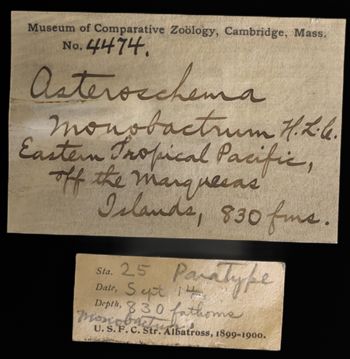 Museum of Comparative Zoölogy, Cambridge, Mass.
No. 4474.
Asteroschema
monobactrum H.L.C.
Eastern Tropical Pacific,
off the Marquesas
Islands, 830 fms.
Sta. 25 Paratype
Date, Sept 14
Depth, 830 fathoms
monobactrum
U. S. F. C. Str. Albatross, 1899-1900.